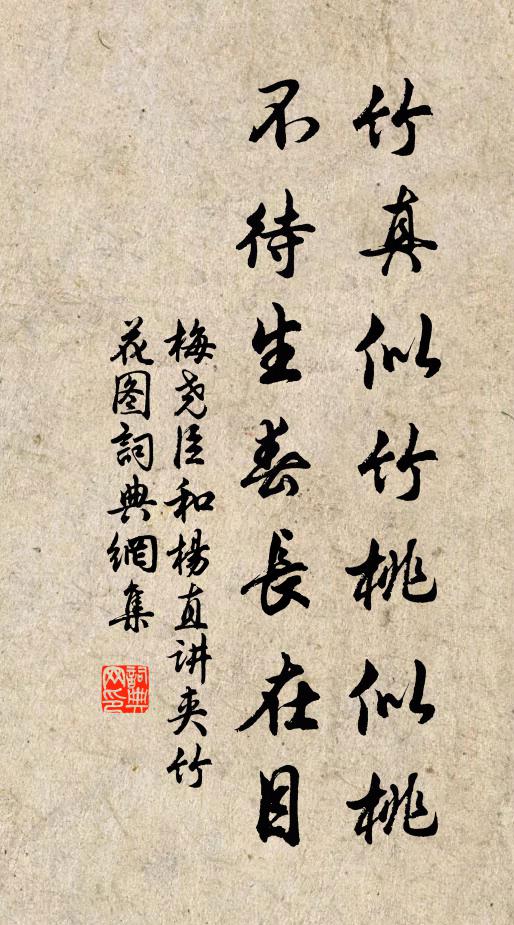 竹真似竹桃似桃
不待生春長在目
梅尧臣和楊直讲夹竹
花图詞典網集
詞典
网印